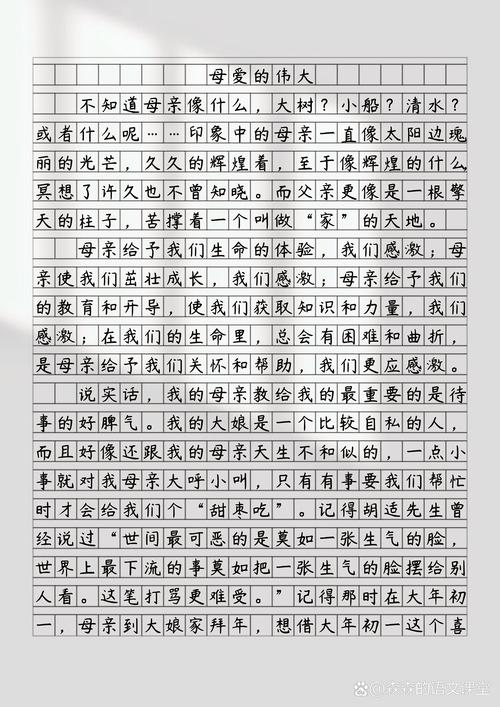 母爱的伟大
不知道母亲像什么，大树？小船？清水？
或者什么呢……印象中的母亲一直像太阳边瑰
丽的光芒，久久的辉煌着，至于像辉煌的什么
冥想了许久也不曾知晓。而父亲更像是一根擎
天的柱子，苦撑着一个叫做“家”的天地。
母亲给予我们生命的体验，我们感激；母
亲使我们茁壮成长，我们感激；母亲给予我们
的教育和开导，使我们获取知识和力量，我们
感激；在我们的生命里，总会有困难和曲折，
是母亲给予我们关怀和帮助，我们更应感激。
说实话，我的母亲教给我的最重要的是待
事的好脾气。我的大娘是一个比较自私的人，
而且好像还跟我的母亲天生不和似的，一点小
事就对我母亲大呼小叫，只有有事要我们帮忙
时才会给我们个“甜枣吃”。记得胡适先生曾
经说过“世间最可恶的是莫如一张生气的脸，
世界上最下流的事莫如把一张生气的脸摆给别
人看。这笔打骂更难受。”记得那时在大年初
一，母亲到大娘家拜年，想借大年初一这个喜
森森的语文课堂